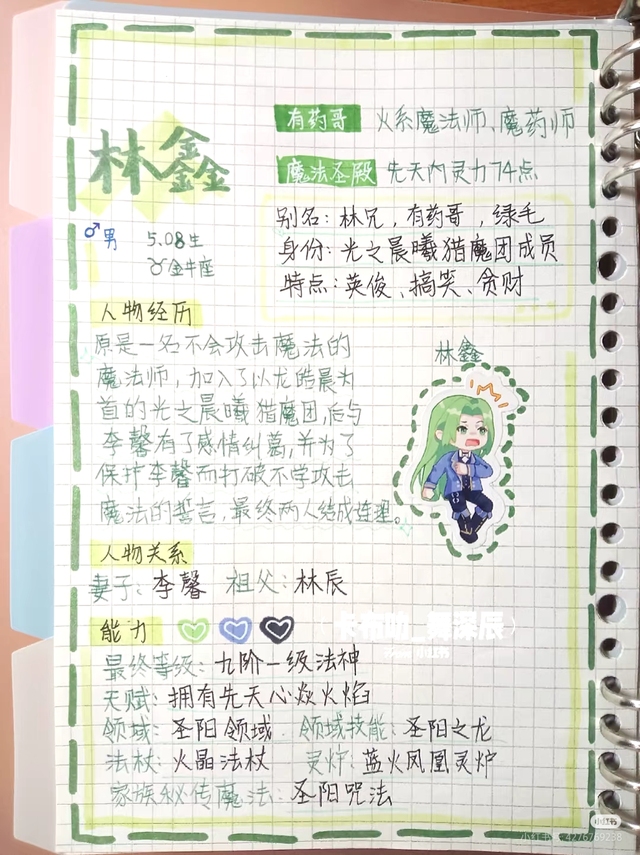 林鑫
有药哥 火系魔法师、魔药师
魔法圣殿 先天内灵力74点
♂男 5.08生
♉金牛座
别名：林兄，有药哥，绿毛
身份：光之晨曦猎魔团成员
特点：英俊、搞笑、贪财
人物经历
原是一名不会攻击魔法的
魔法师，加入了以龙皓晨为
首的光之晨曦猎魔团，后与
李馨有了感情纠葛，并为了
保护李馨而打破不学攻击
魔法的誓言，最终两人结成连理。
林鑫
人物关系
妻子：李馨 祖父：林辰
能力
最终等级：九阶一级法神
天赋：拥有先天心焱火焰
领域：圣阳领域 领域技能：圣阳之龙
法杖：火晶法杖 灵炉：蓝火凤凰灵炉
家族秘传魔法：圣阳咒法
小红书
小红书号：4276769238